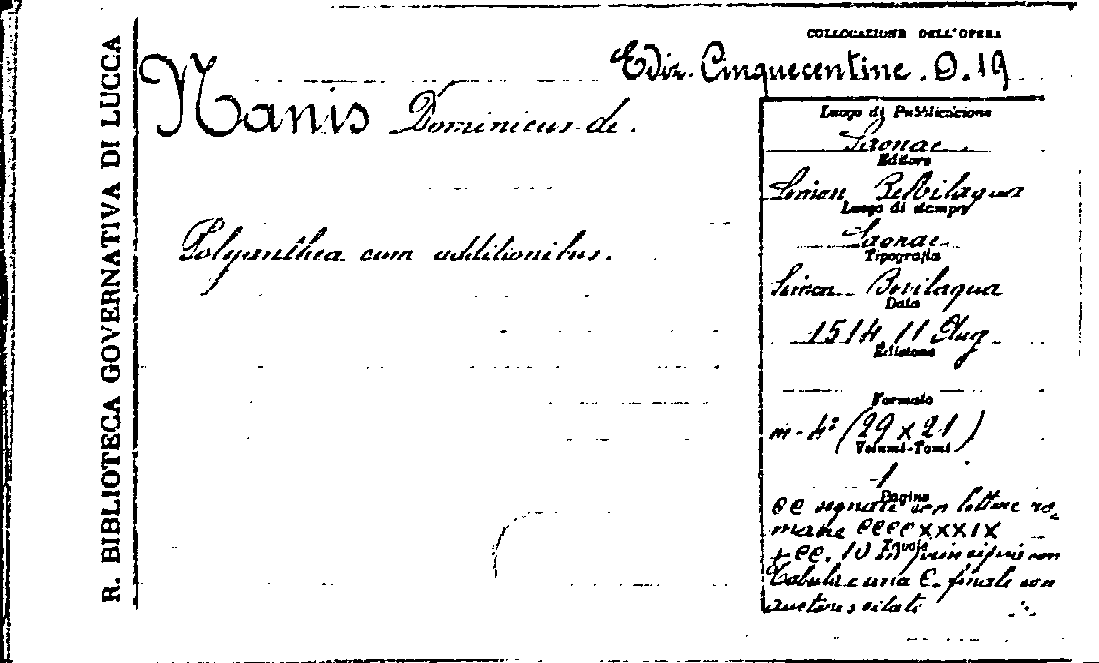 R. BIBLIOTECA GOVERNATIVA DI LUCCA
COLLOCAZIONE DELL'OPERA
Ediz. Cinquecentine. D. 19
Nanis Dominicus de.
Polyanthea cum additionibus.
Luogo di Pubblicazione
Saonae.
Editore
Simon Bevilaqua
Luogo di stampa
Saonae
Tipografia
Simon Bevilaqua
Data
1514, 11 Aug
Edizione
Formato
in-4º (29 x 21)
Volumi-Tomi
1
Pagine
cc segnate con lettere ro-
mane CCCCXXXIX
+ cc. 10 in principio con
Tavole
Tabula e una c. finale con
auctores citati